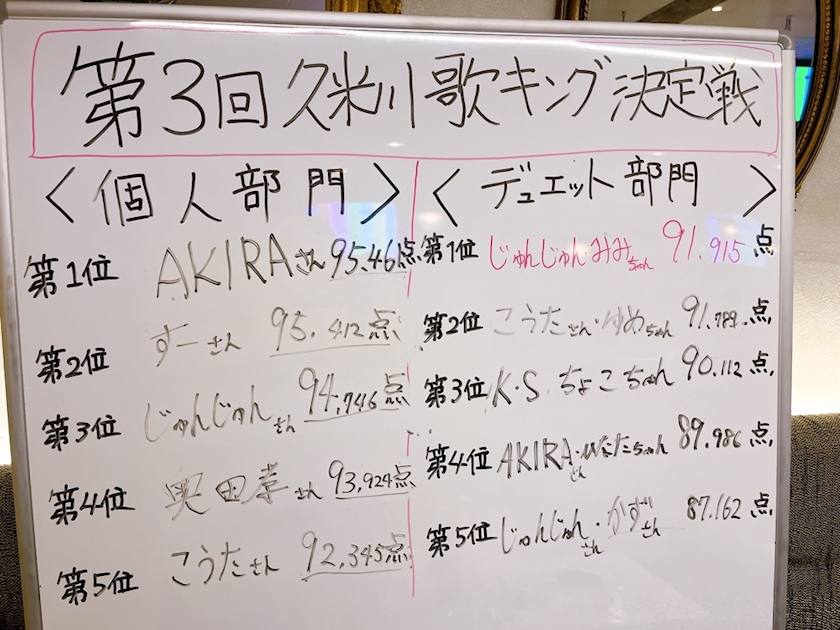 第3回久米川歌キング決定戦
〈個人部門〉
第1位 AKIRAさん 95.461点
第2位 すーさん 95.412点
第3位 じゅんじゅんさん 94.746点
第4位 奥田孝さん 93.924点
第5位 こうたさん 92.345点
〈デュエット部門〉
第1位 じゅんじゅん・みみちゃん 91.915点
第2位 こうたさん・ゆめちゃん 91.789点
第3位 K・S ちょこちゃん 90.112点
第4位 AKIRAさん・ひなたちゃん 89.986点
第5位 じゅんじゅんさん・かずさん 87.162点